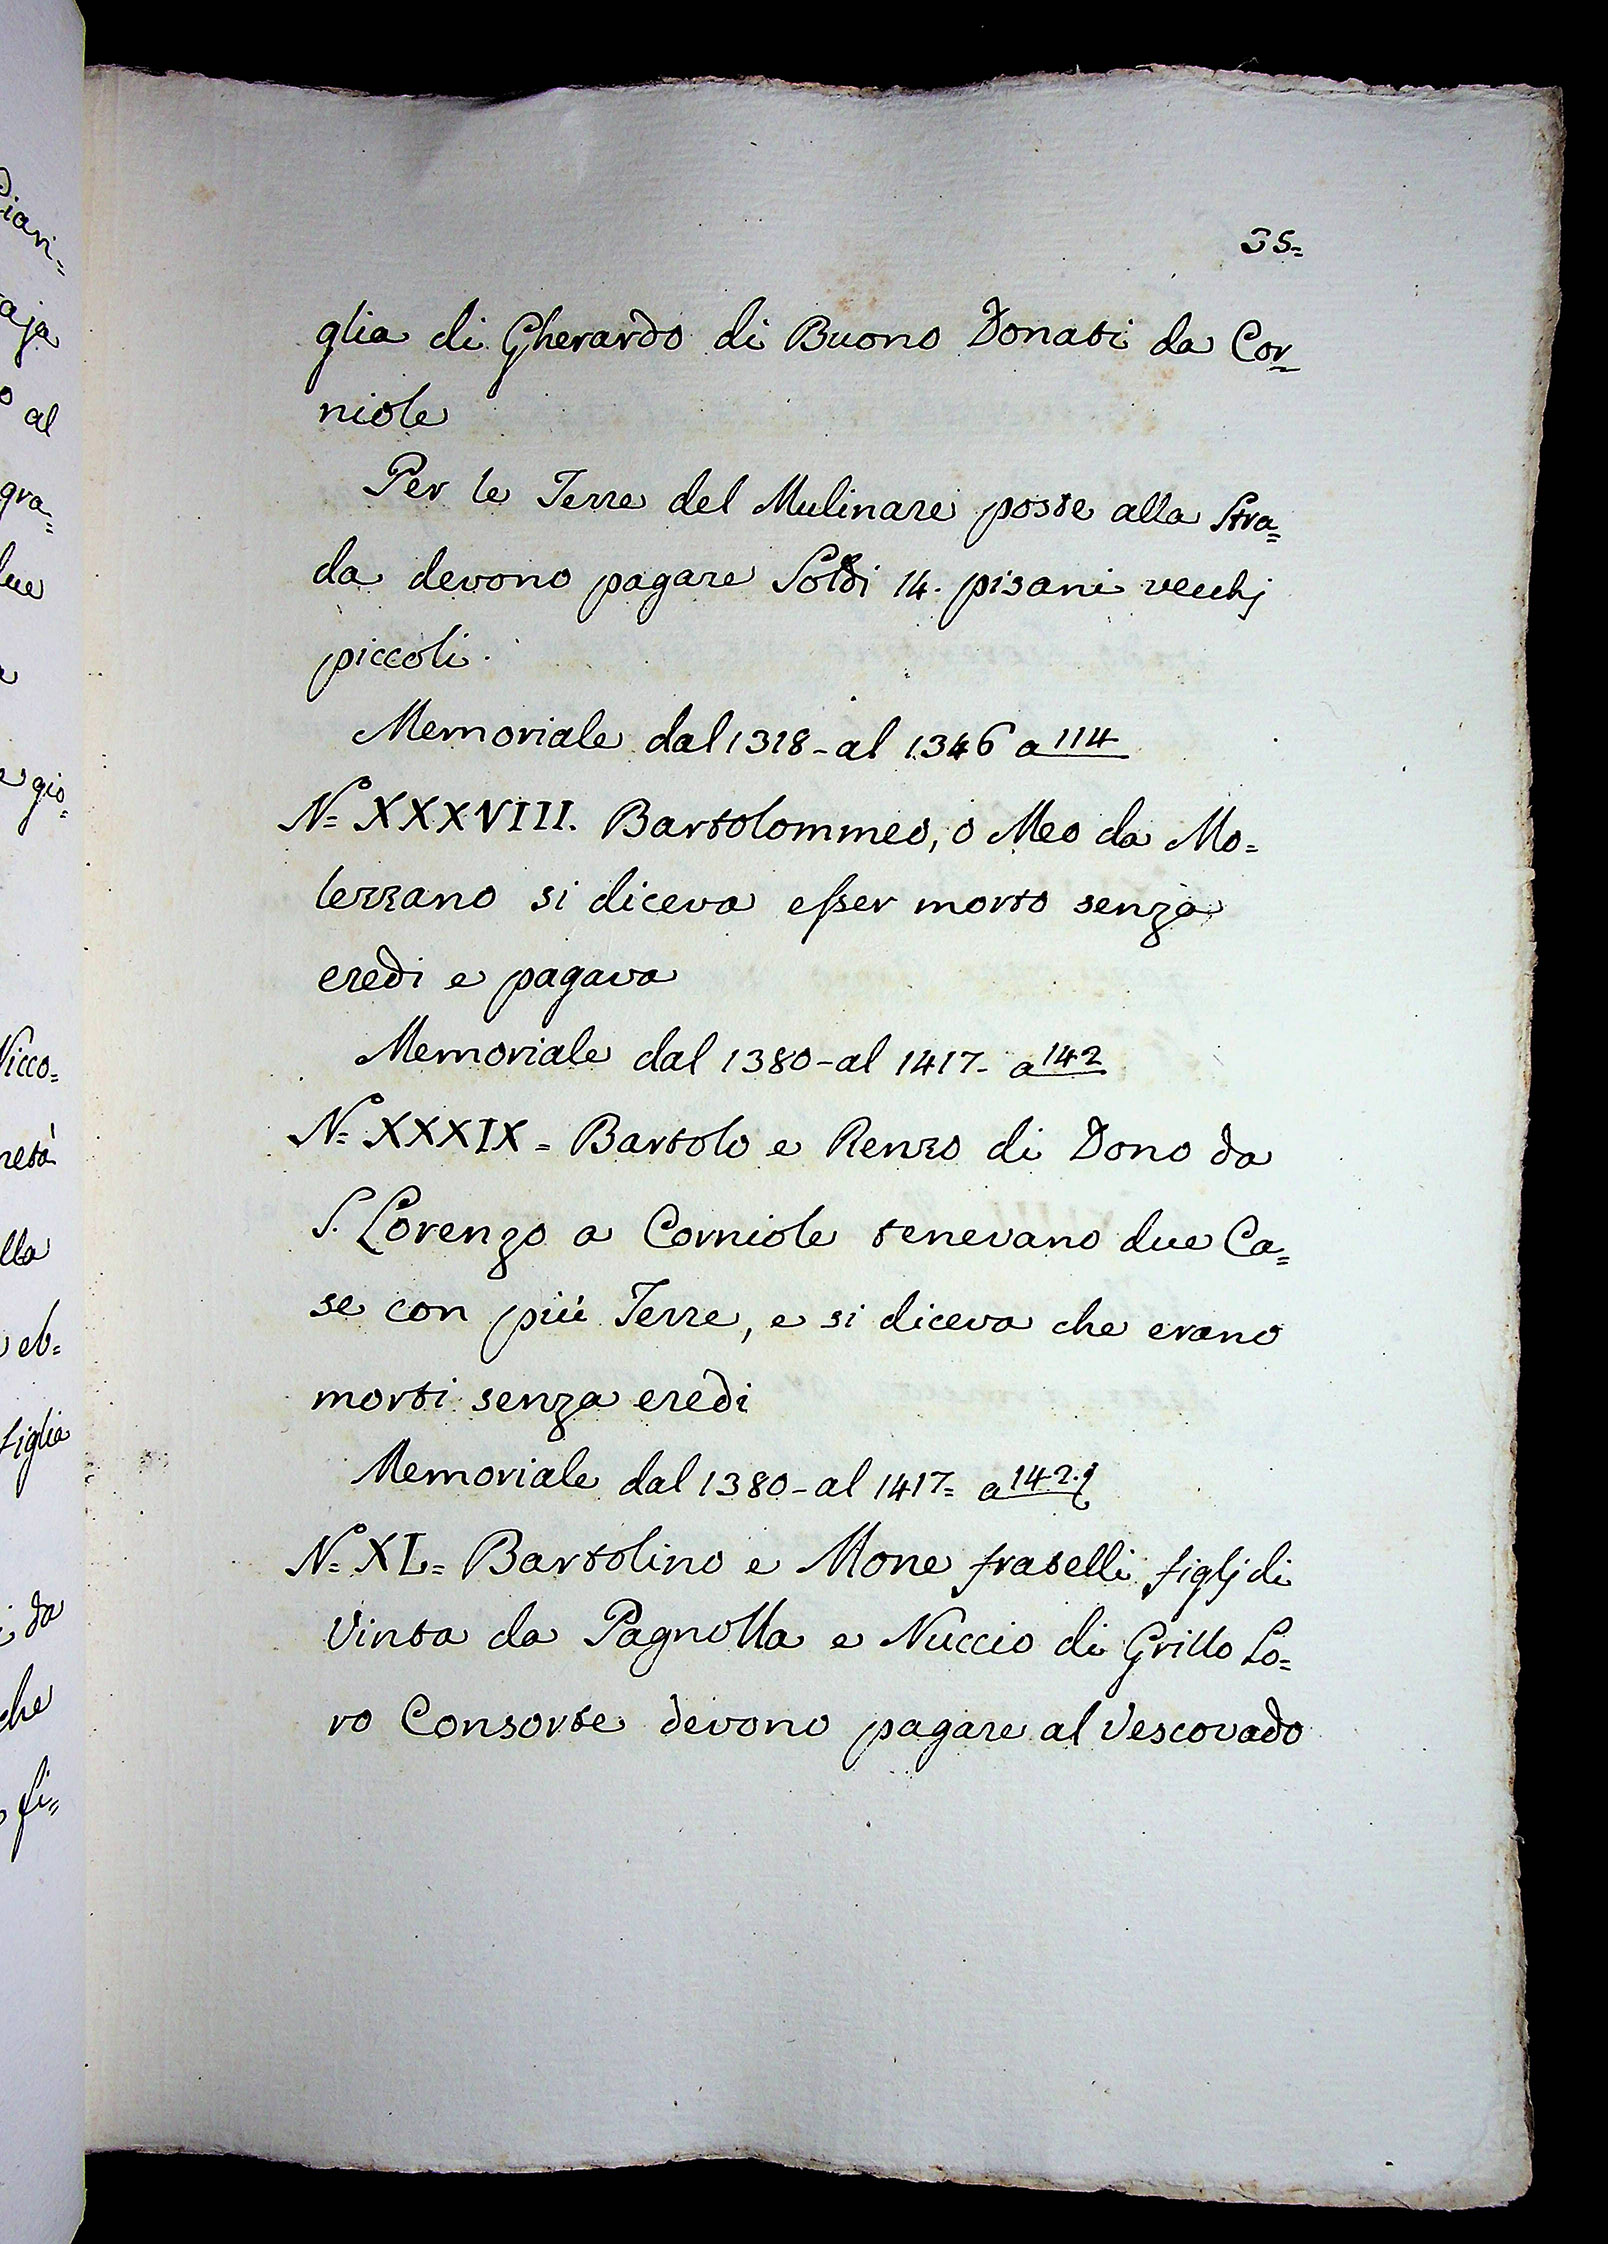 35=
glia di Gherardo di Buono Donati da Cor=
niole
Per le Terre del Mulinare poste alla Stra=
da devono pagare Soldi 14. pisani vecchj
piccoli.
Memoriale dal 1318-al 1346 a 114
N.= XXXVIII. Bartolommeo, o Meo da Mo=
lezzano si diceva esser morto senza
eredi e pagava
Memoriale dal 1380-al 1417- a 142
N.= XXXIX = Bartolo e Renzo di Dono da
S. Lorenzo a Corniole tenevano due Ca=
se con più Terre, e si diceva che erano
morti senza eredi
Memoriale dal 1380-al 1417= a 142.
N.= XL= Bartolino e Mone fratelli figlj di
Vinta da Pagnolla e Nuccio di Grillo Lo=
ro Consorte devono pagare al Vescovado
aja
al
gra=
gio=
Nicco=
lla
figlia
da
che
fi=